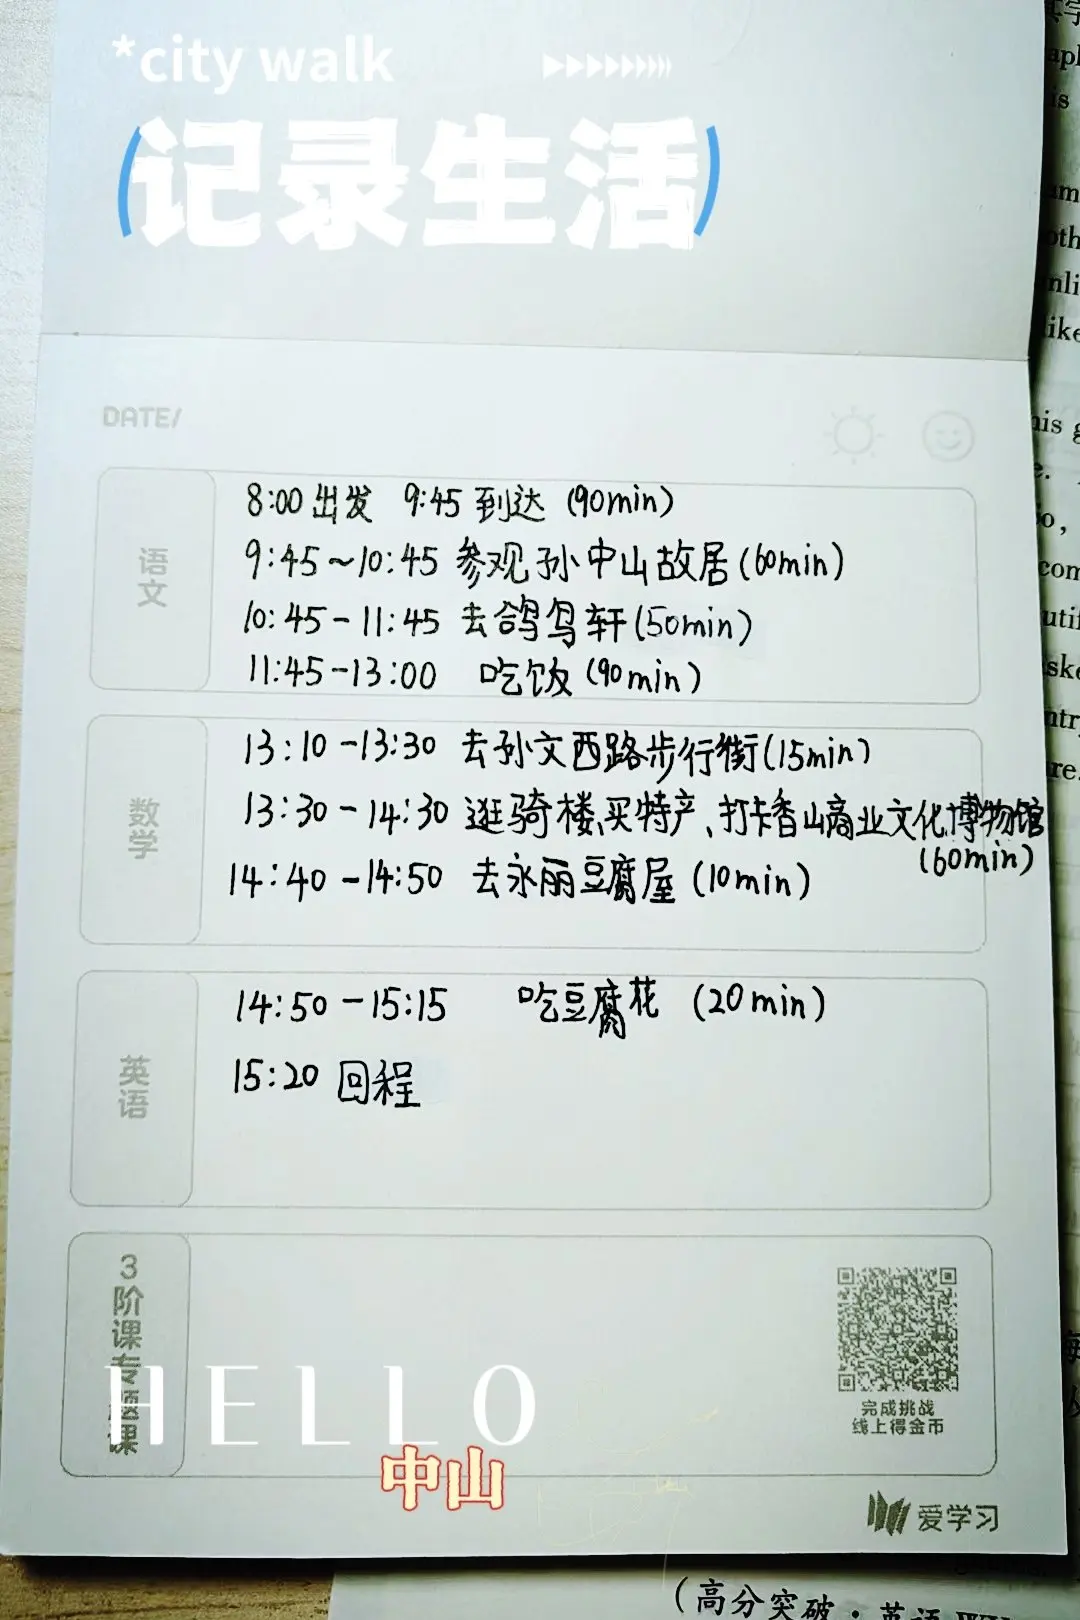 *city walk
(记录生活)
DATE/
语文
8:00 出发 9:45 到达 (90min)
9:45~10:45 参观孙中山故居(60min)
10:45-11:45 去鸽鸟轩(50min)
11:45-13:00 吃饭(90min)
数学
13:10-13:30 去孙文西路步行街(15min)
13:30-14:30 逛骑楼、买特产、打卡香山商业文化博物馆
(60min)
14:40-14:50 去永丽豆腐屋(10min)
英语
14:50-15:15 吃豆腐花 (20min)
15:20 回程
3阶课专题课
完成挑战
线上得金币
HELLO
中山
爱学习
(高分突破·英语